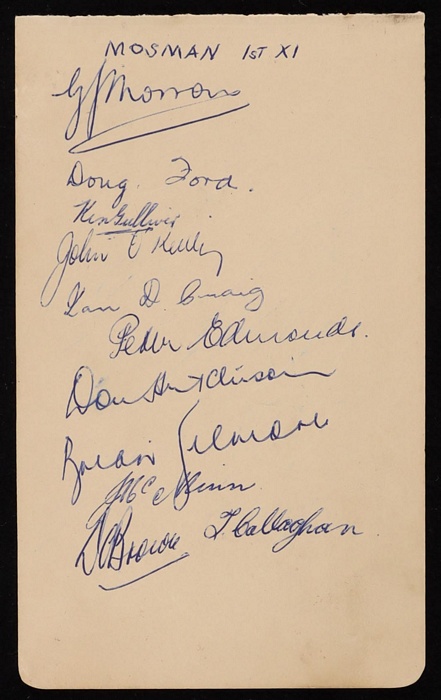 MOSMAN 1ST XI
G Morrow
Doug. Ford.
Ken Gulliver
John O'Reilly
Ian D. Craig
Peter Edmonds.
Don Hutchison
Brian
McMinn
Brown T Callaghan